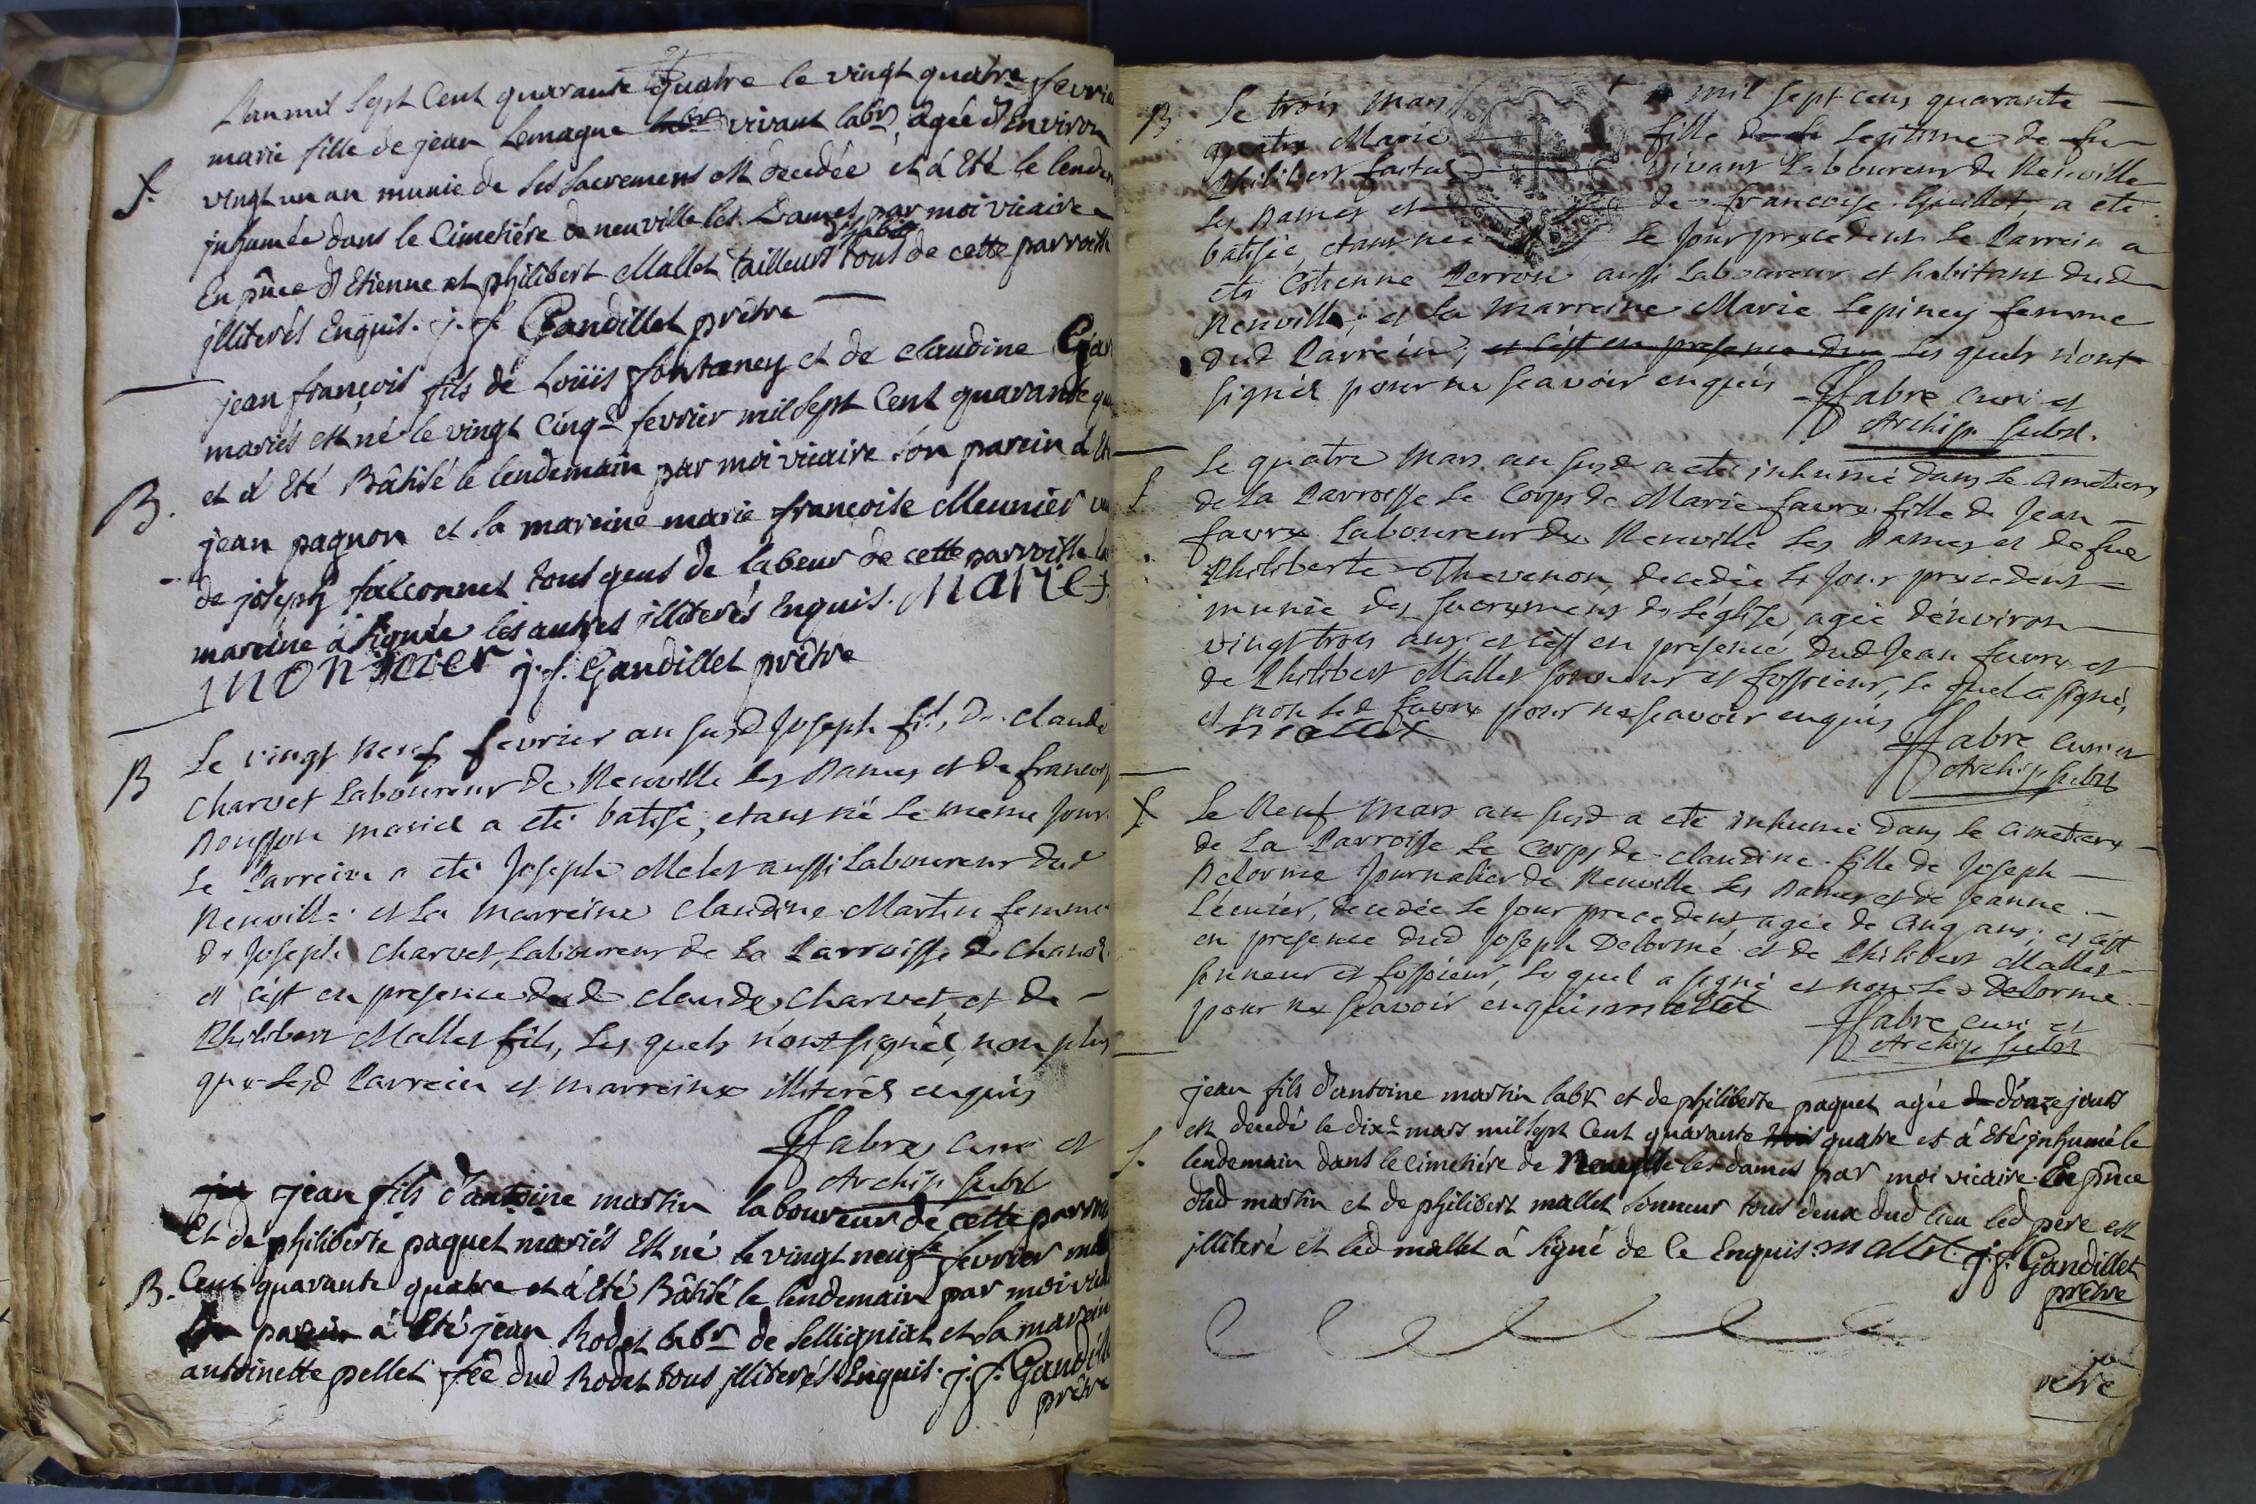 L'an mil Sept Cent quarante quatre le vingt quatre fevrier
marie fille de jean Lemagne vivant labr, agée d'Environ
S. vingt un an munie de ses sacremens est decedée et á Eté le lendem
jnhumée dans le Cimetiére de neuville les Dames par moi vicaire
En pñce d'Etienne et philibert Mallet tailleurs d'habits tous de cette parroisse
jlliterés Enquis. j. f. Gandillet prêtre
jean françois fils de Loüis fontaney et de claudine
mariés est né le vingt cinqe fevrier mil Sept Cent quarante qua
B. et á Eté Bâtisé le lendemain par moi vicaire son parein á Eté
jean pagnon et la mareine marie françoise Meunier
de joseph falconnet tous gens de labeur de cette parroisse la
mareine á signée les autres jlliterés Enquis. Marie f.
monnier j. f. Gandillet prêtre
B Le vingt neuf fevrier an susd Joseph fils de claude
Charvet Laboureur de Neuville les Dames et de francoise
Rousson mariés a eté batisé, etant né le meme jour
Le Parrein a eté Joseph Melet aussi Laboureur dud
Neuville et La marreine Claudine Martin femme
de Joseph Charvet, Laboureur de La Parroisse de Chanoz
et c'est en presence dud claude Charvet, et de
Philibert Mallet fils, Les quels n'ont signés, non plus
que Lesd Parrein et marreine illiterés enquis
ffabre curé et
Archip. Subst
jean fils d'antoine martin laboureur de cette parroi
Et de philiberte paquet mariés Est né le vingt neufe fevrier mil
B. Cent quarante quatre et á Eté Bâtisé le lendemain par moi vic
parein á Eté jean Rodet labr de Selligniat et sa marein
antoinette pellet fëe dud Rodet tous jlliterés Enquis. j. f. Gandill
prêtre
B Le trois Mars mil sept cens quarante
quatre Marie fille legitime de feu
Philibert vivant Laboureur de Neuville
les Dames et de francoise Guillet a eté
batisée, etant née le jour precedent. Le Parrein a
eté Etienne Perron aussi Laboureur et habitant dud
Neuville; et La marreine Marie Lepiney femme
dud Parrein; et c'est en presence des Les quels n'ont
signés pour ne sçavoir enquis ffabre curé et
Archip. Subst.
S. Le quatre Mars an susd a eté inhumé dans le cimetiere
de La Parroisse le Corps de Marie favre fille de Jean
favre Laboureur de Neuville Les Dames et de fue
Philiberte Thevenon, decedée le jour precedent
munie des sacremens de l'église, agée d'environ
vingt trois ans et c'est en presence dud Jean favre et
de Philibert Mallet sonneur et fossoieur, le quel a signé,
et non led favre pour ne sçavoir enquis
mallet ffabre curé et
Archip. Subst
S. Le Neuf Mars an susd a eté inhumé dans le cimetiere
de La Parroisse Le Corps de claudine fille de Joseph
Delorme Journalier de Neuville les Dames et de Jeanne
Lecuier, decedée le jour precedent, agée de cinq ans; et c'est
en presence dud Joseph Delorme et de Philibert Mallet
sonneur et fossoieur, le quel a signé et non led Delorme
pour ne sçavoir enquis mallet ffabre curé et
Archip. Subst
jean fils d'antoine martin labr et de philiberte paquet agée de d'onze jours
est decedé le dixe mars mil sept Cent quarante trois quatre et á Eté jnhumé le
S. lendemain dans le cimetiére de Neuville les dames par moi vicaire En pñce
dud martin et de philibert mallet sonneur tous deux dud lieu led pere est
jlliteré et led mallet á signé de ce Enquis. mallet. j. f. Gandillet
prêtre